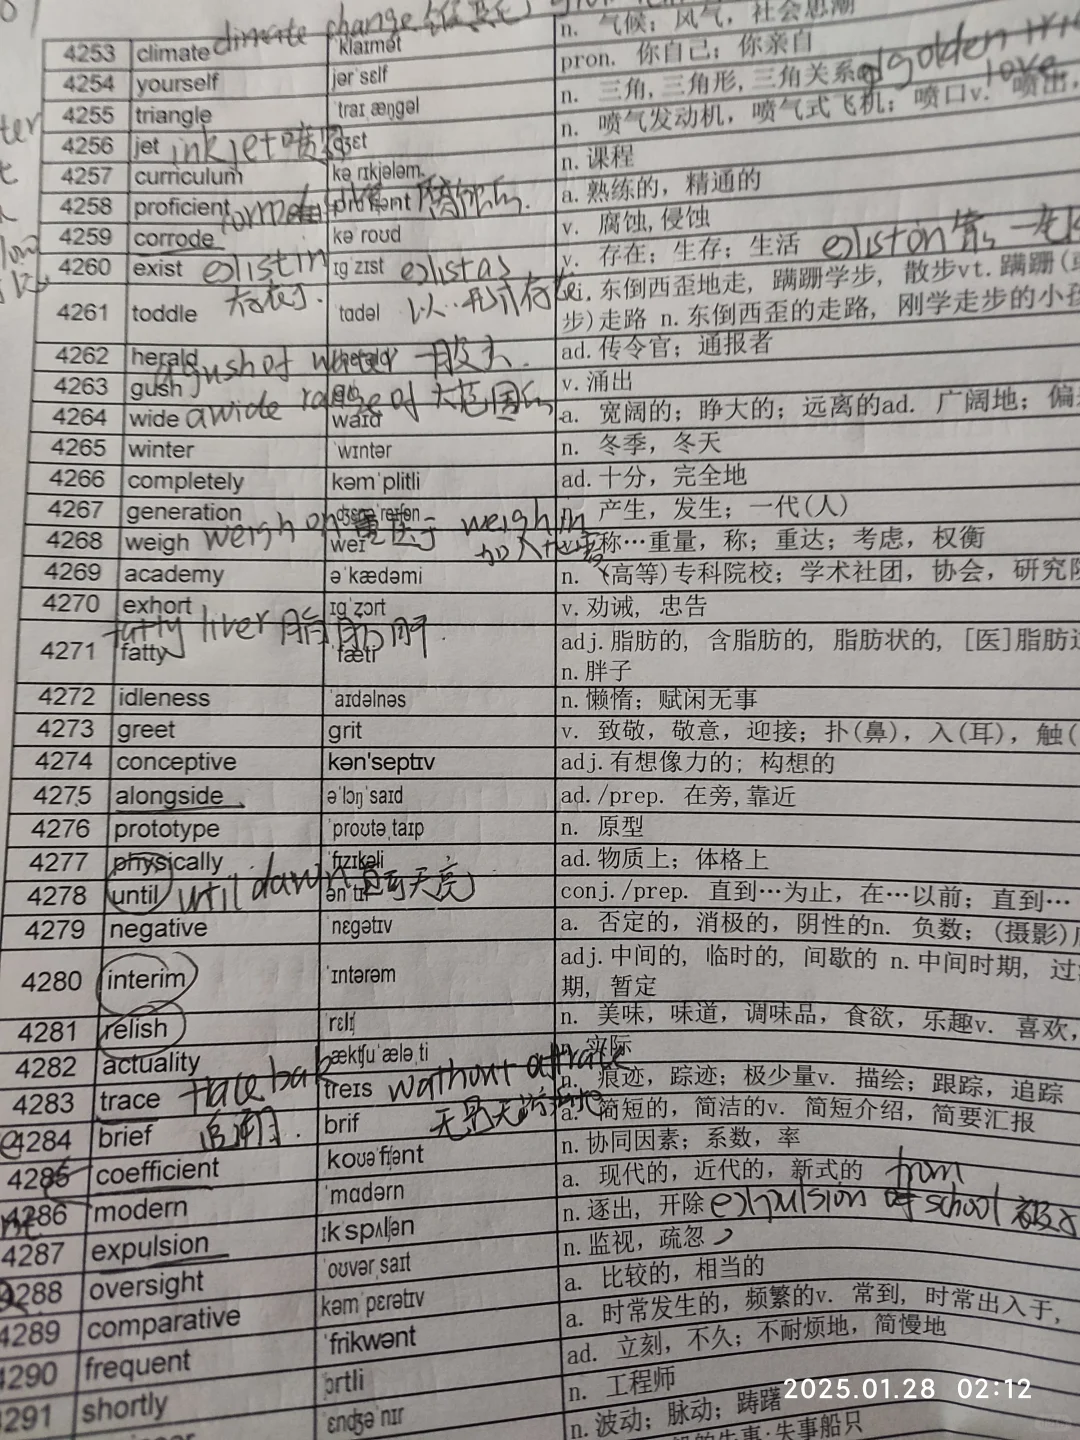 climate change
4253 climate ˈklaɪmət n. 气候；风气，社会思潮
4254 yourself jərˈsɛlf pron. 你自己；你亲自
golden
love
4255 triangle ˈtraɪˌæŋgəl n. 三角，三角形，三角关系
4256 jet inkjet dʒɛt n. 喷气发动机，喷气式飞机；喷口v. 喷出，
4257 curriculum kəˈrɪkjələm n. 课程
4258 proficient a. 熟练的，精通的
4259 corrode kəˈroʊd v. 腐蚀,侵蚀
4260 exist exist in ɪgˈzɪst exist as v. 存在；生存；生活
存在于. 以…形式存在
4261 toddle ˈtɑdəl vi. 东倒西歪地走, 蹒跚学步, 散步vt. 蹒跚(
步)走路 n. 东倒西歪的走路, 刚学走步的小孩
4262 herald ad. 传令官；通报者
a gush of water 一股水
4263 gush v. 涌出
4264 wide a wide range of 大范围的 waɪd a. 宽阔的；睁大的；远离的ad. 广阔地；偏
4265 winter ˈwɪntər n. 冬季，冬天
4266 completely kəmˈplitli ad. 十分，完全地
4267 generation n. 产生，发生；一代(人)
4268 weigh weigh on 重压于 weigh in weɪ v. 称…重量，称；重达；考虑，权衡
4269 academy əˈkædəmi n. (高等)专科院校；学术社团，协会，研究院
4270 exhort ɪgˈzɔrt v. 劝诫, 忠告
fatty liver 脂肪肝.
4271 fatty ˈfæti adj. 脂肪的, 含脂肪的, 脂肪状的, [医]脂肪
n. 胖子
4272 idleness ˈaɪdəlnəs n. 懒惰；赋闲无事
4273 greet grit v. 致敬，敬意，迎接；扑(鼻)，入(耳)，触(
4274 conceptive kən'septɪv adj. 有想像力的; 构想的
4275 alongside əˈlɔŋˈsaɪd ad./prep. 在旁,靠近
4276 prototype ˈproʊtəˌtaɪp n. 原型
4277 physically ˈfɪzɪkəli ad. 物质上；体格上
4278 until until dawn 直到天亮 ənˈtɪl conj./prep. 直到…为止，在…以前；直到…
4279 negative ˈnɛgətɪv a. 否定的，消极的，阴性的n. 负数；(摄影)
4280 interim ˈɪntərəm adj. 中间的, 临时的, 间歇的 n. 中间时期, 过
期, 暂定
4281 relish ˈrɛlɪʃ n. 美味，味道，调味品，食欲，乐趣v. 喜欢，
4282 actuality ˌækʧuˈæləˌti n. 实际
4283 trace treɪs without a trace n. 痕迹，踪迹；极少量v. 描绘；跟踪，追踪
追溯. 无影无踪地
4284 brief brif a. 简短的，简洁的v. 简短介绍，简要汇报
4285 coefficient ˌkoʊəˈfɪʃənt n. 协同因素；系数，率
4286 modern ˈmɑdərn a. 现代的，近代的，新式的
from
4287 expulsion ɪkˈspʌlʃən n. 逐出，开除 expulsion of school
4288 oversight ˈoʊvərˌsaɪt n. 监视，疏忽
4289 comparative kəmˈpɛrətɪv a. 比较的，相当的
4290 frequent ˈfrikwənt a. 时常发生的，频繁的v. 常到，时常出入于，
4291 shortly ad. 立刻，不久；不耐烦地，简慢地
ˌɛndʒəˈnɪr n. 工程师
n. 波动；脉动；踌躇
2025.01.28 02:12